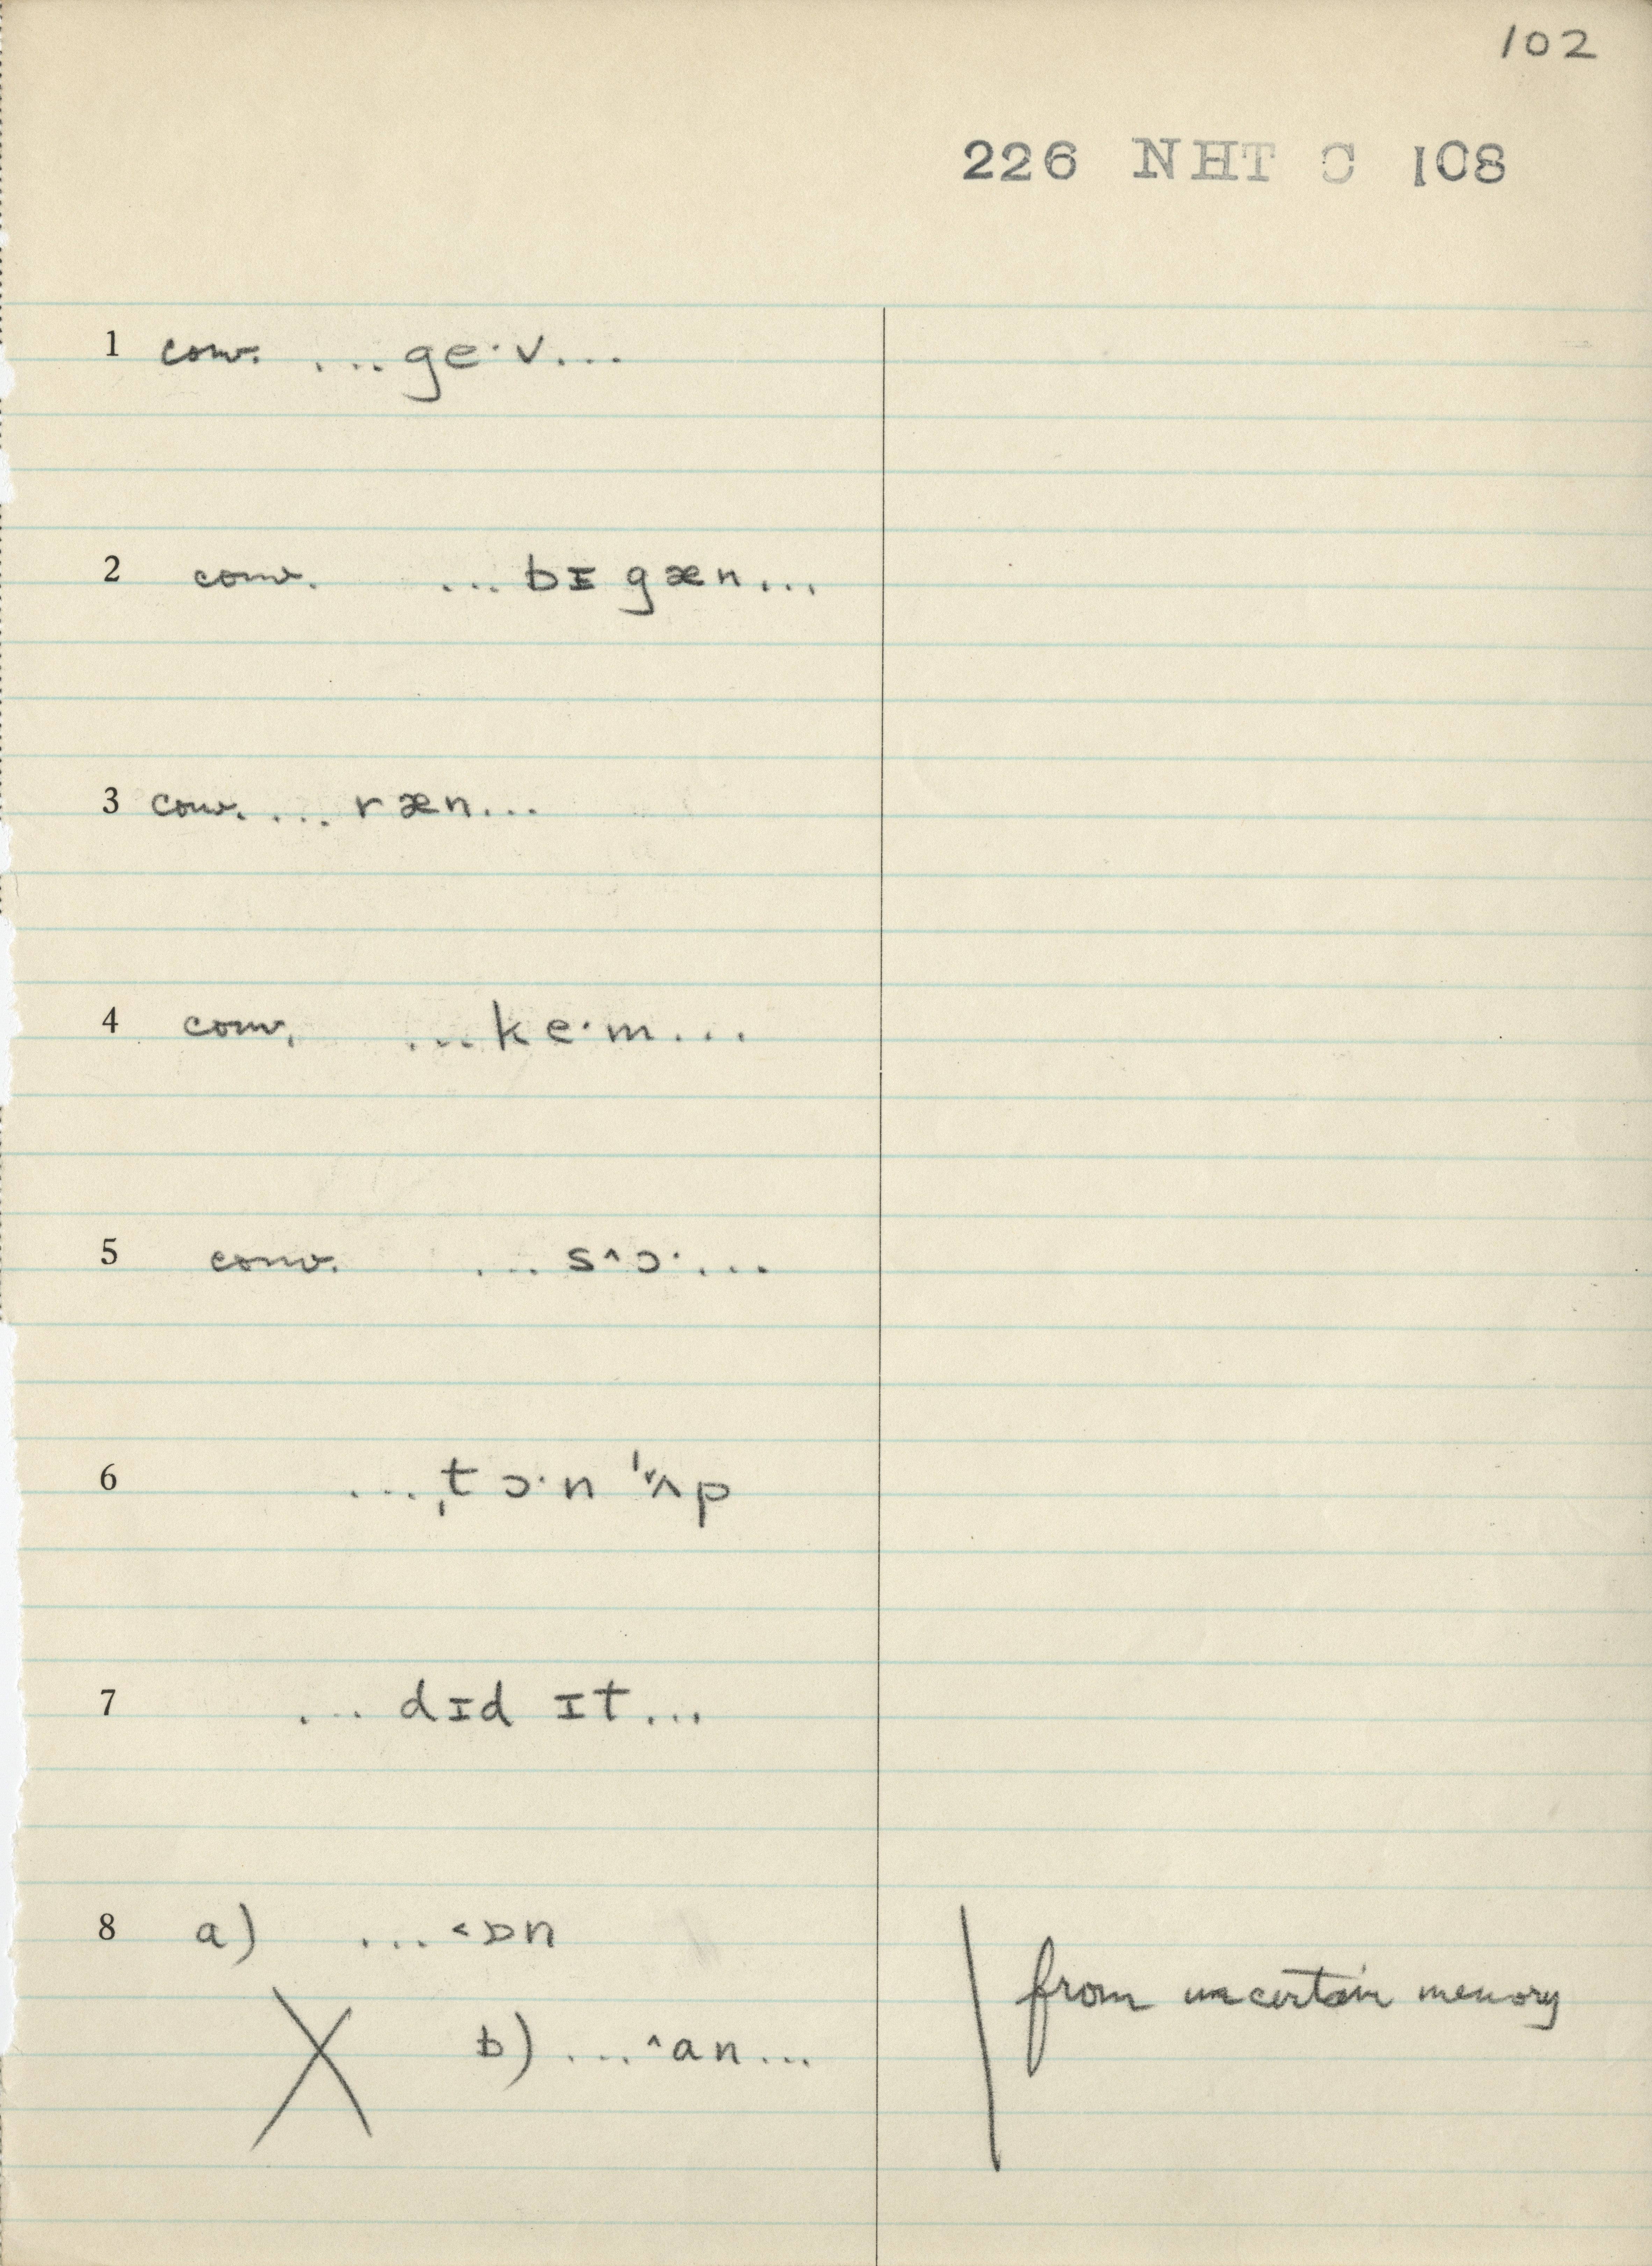 102
226 NHT C 108
1 conv. ...ge·v...
2 conv. ...bɪgæn...
3 conv. ...ræn...
4 conv. ...ke·m...
5 conv. ...s^ɔ·...
6 ...ˌtɔ·n ˈ˅ʌp
7 ...dɪd ɪt...
8 a) ...˂ɒn
from uncertain memory
X b) ...^an...